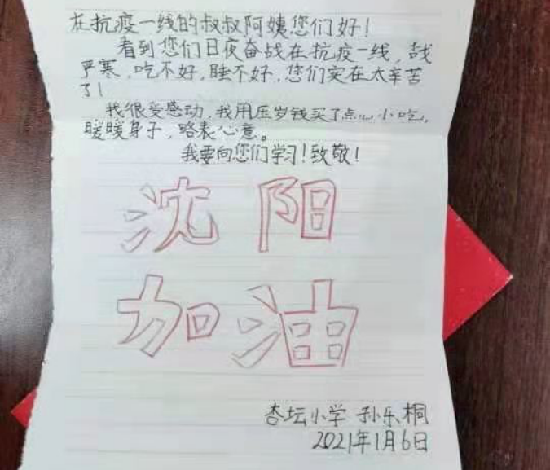 在抗疫一线的叔叔阿姨您们好！
看到您们日夜奋战在抗疫一线，战
严寒，吃不好，睡不好，您们实在太辛苦
了！
我很受感动，我用压岁钱买了点心小吃，
暖暖身子，略表心意。
我要向您们学习！致敬！
沈阳
加油
杏坛小学 孙乐桐
2021年1月6日